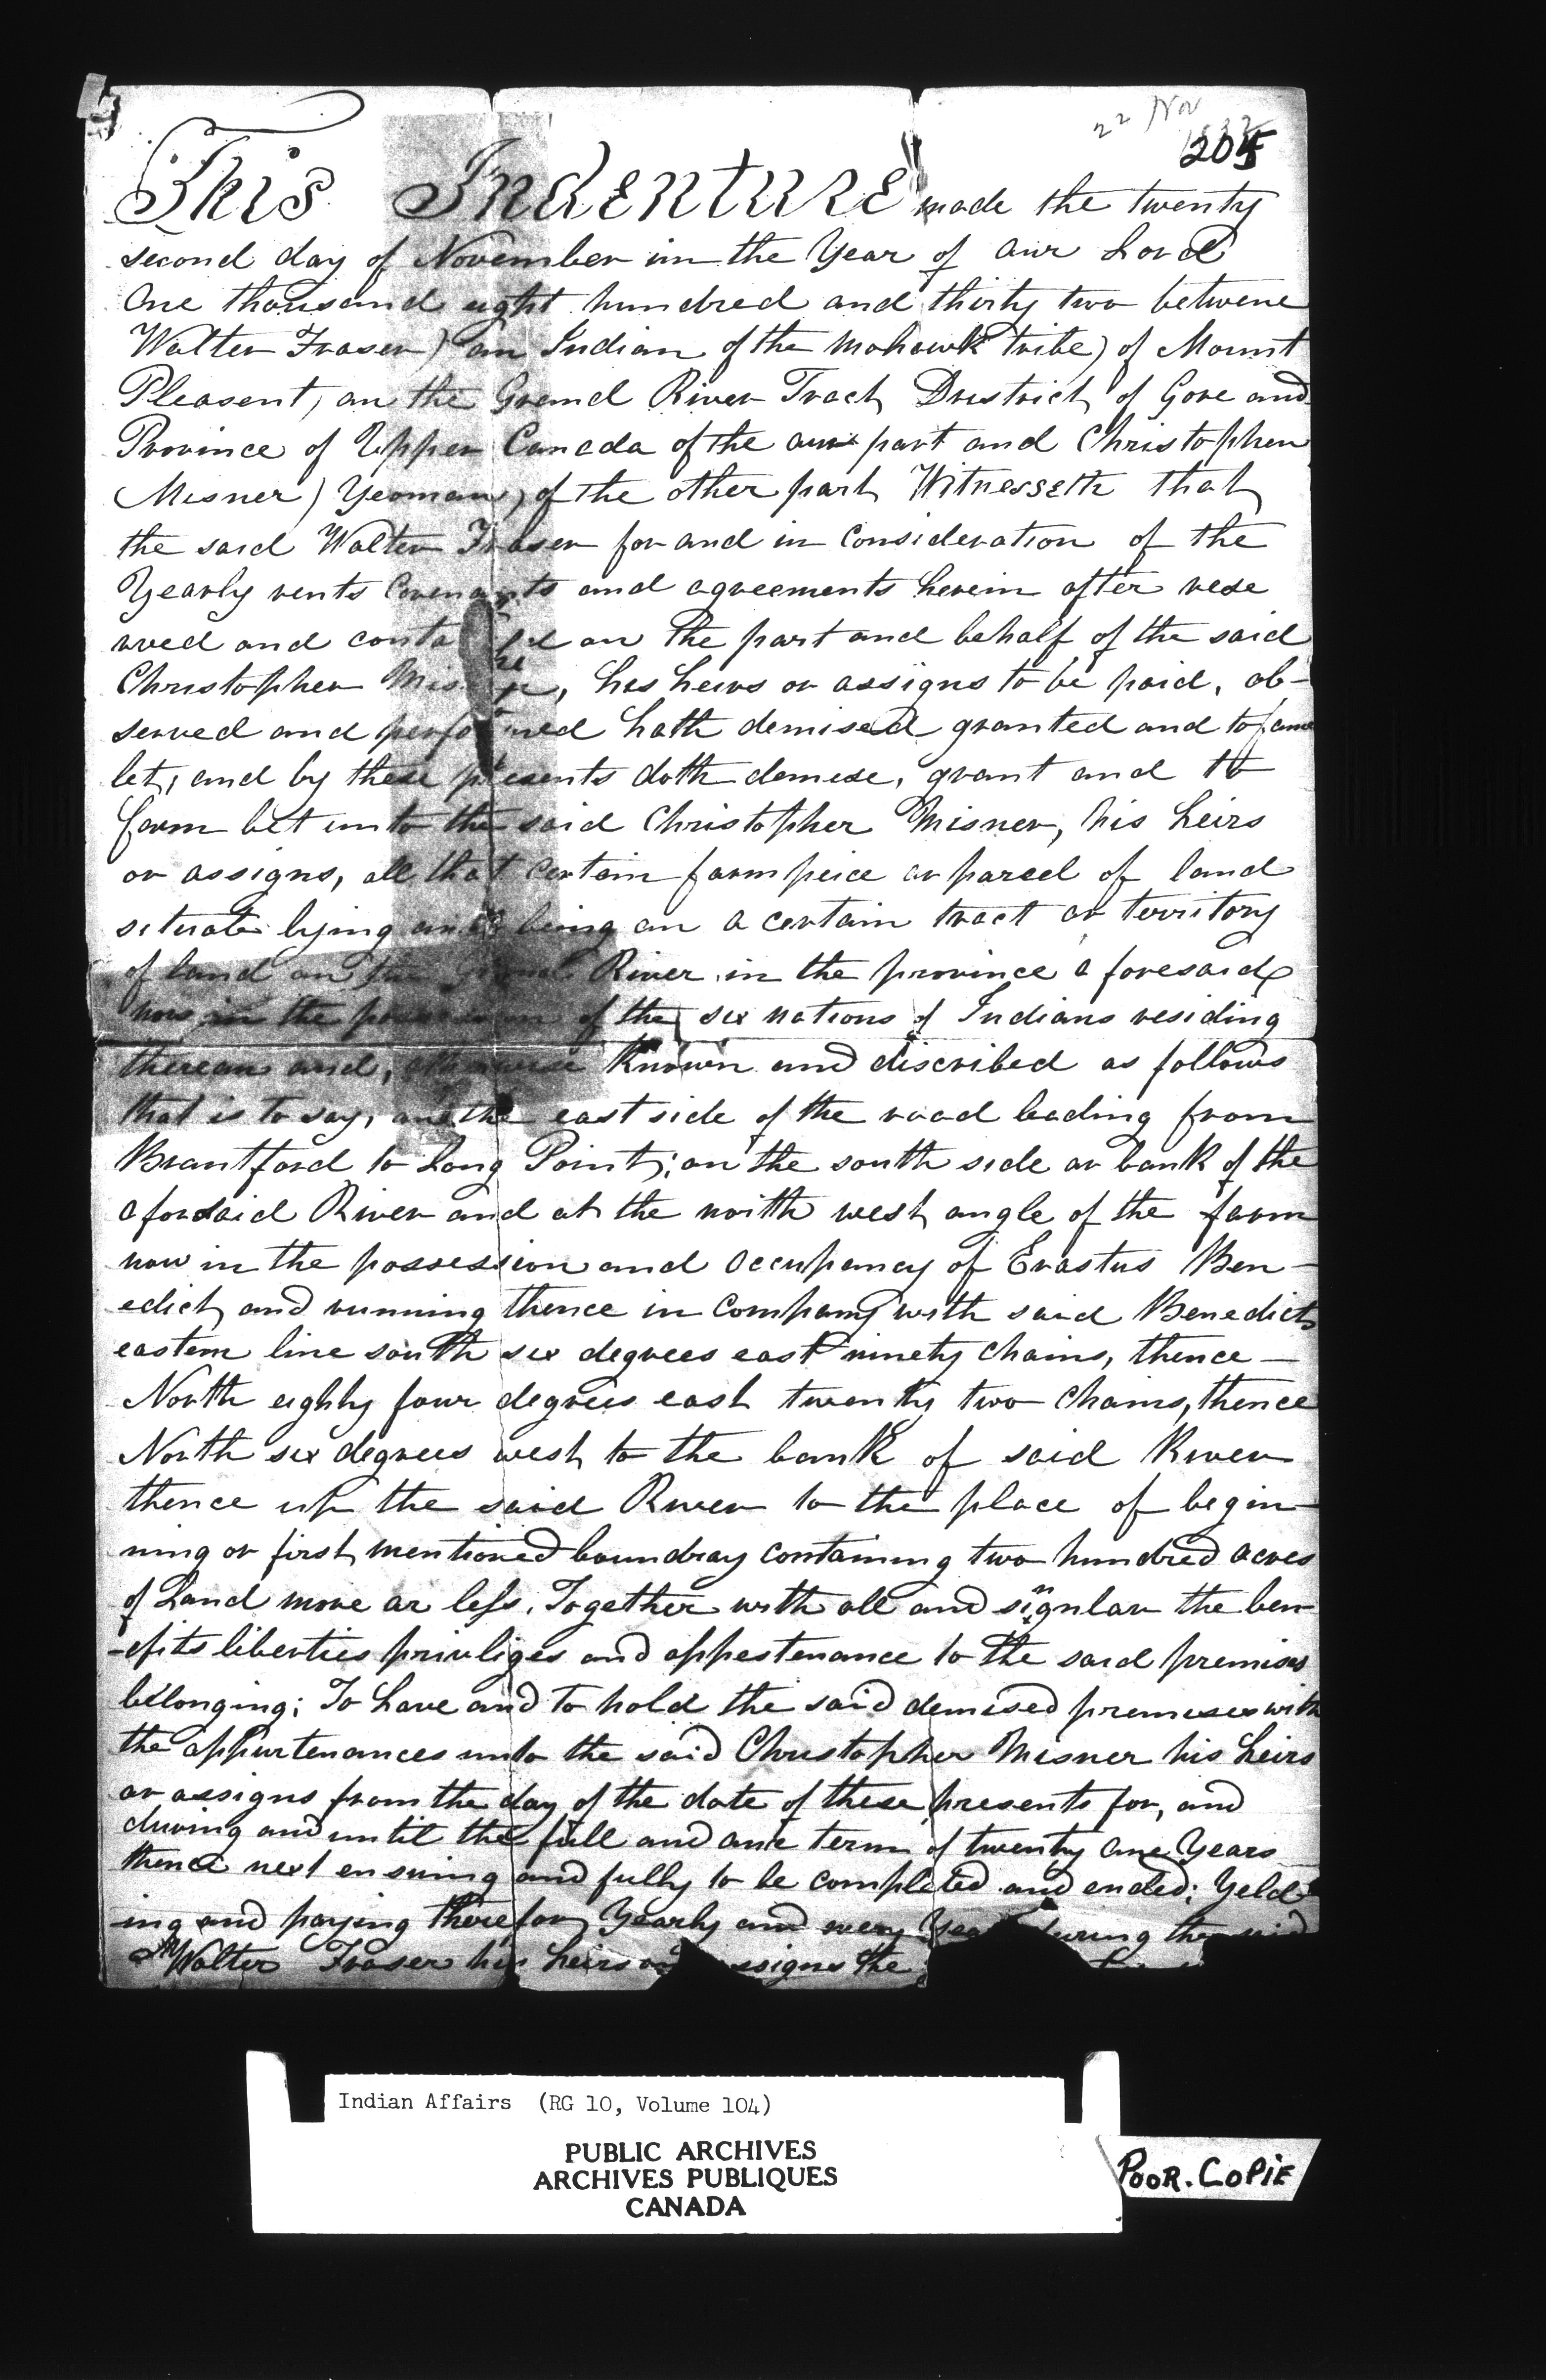 22 Nov
1832
205
This Indenture made the twenty
second day of November in the Year of our Lord
One thousand eight hundred and thirty two betwene
Walter Fraser) an Indian of the Mohawk tribe) of Mount
Pleasent, on the Grand River Tract, Dristrict, of Gore and
Province of Upper Canada of the one part and Christopher
Misner) Yeoman, of the other part, Witnesseth that
the said Walter Fraser for and in consideration of the
Yearly rents Covenants and agreements herein after rese
rved and conta on the part and behalf of the said
Christopher Misner, his heirs or assigns to be paid, ob-
served and performed hath demised granted and to farm
let, and by these presents doth demise, grant and to
farm let unto the said Christopher Misner, his heirs
or assigns, all that certain farm peice or parcel of land
situate lying and being on a certain tract or territory
of land on the Grand River in the province a foresaid
now in the possession of the six nations of Indians residing
thereon and, otherwise Known and discribed as follows
that is to say, on the east side of the road leading from
Brantford to Long Point; on the south side or bank of the
aforesaid River and at the north west angle of the farm
now in the possession and occupancy of Erastus Ben-
edict, and running thence in company with said Benedicts
eastern line south six degrees east ninety chains, thence-
North eighty four degrees east twenty two chains, thence
North six degrees west, to the bank of said River
thence up the said River to the place of begin-
ning or first mentioned boundray containing two hundred acres
of Land more or less. Together with all and singular the ben
-efits liberties priviliges and appestenance to the said premises
belonging; To have and to hold the said demised premises with
the appurtenances unto the said Christopher Misner his heirs
or assigns from the day of the date of these presents for, and
during and until the full and term of twenty one Years
thence next ensuing and fully to be completed and ended: Yeld
ing and paying therefor Yearly and every Year during the said
Walter Fraser his heirs or assigns the
Indian Affairs (RG 10, Volume 104)
PUBLIC ARCHIVES
ARCHIVES PUBLIQUES
CANADA
POOR. COPIE